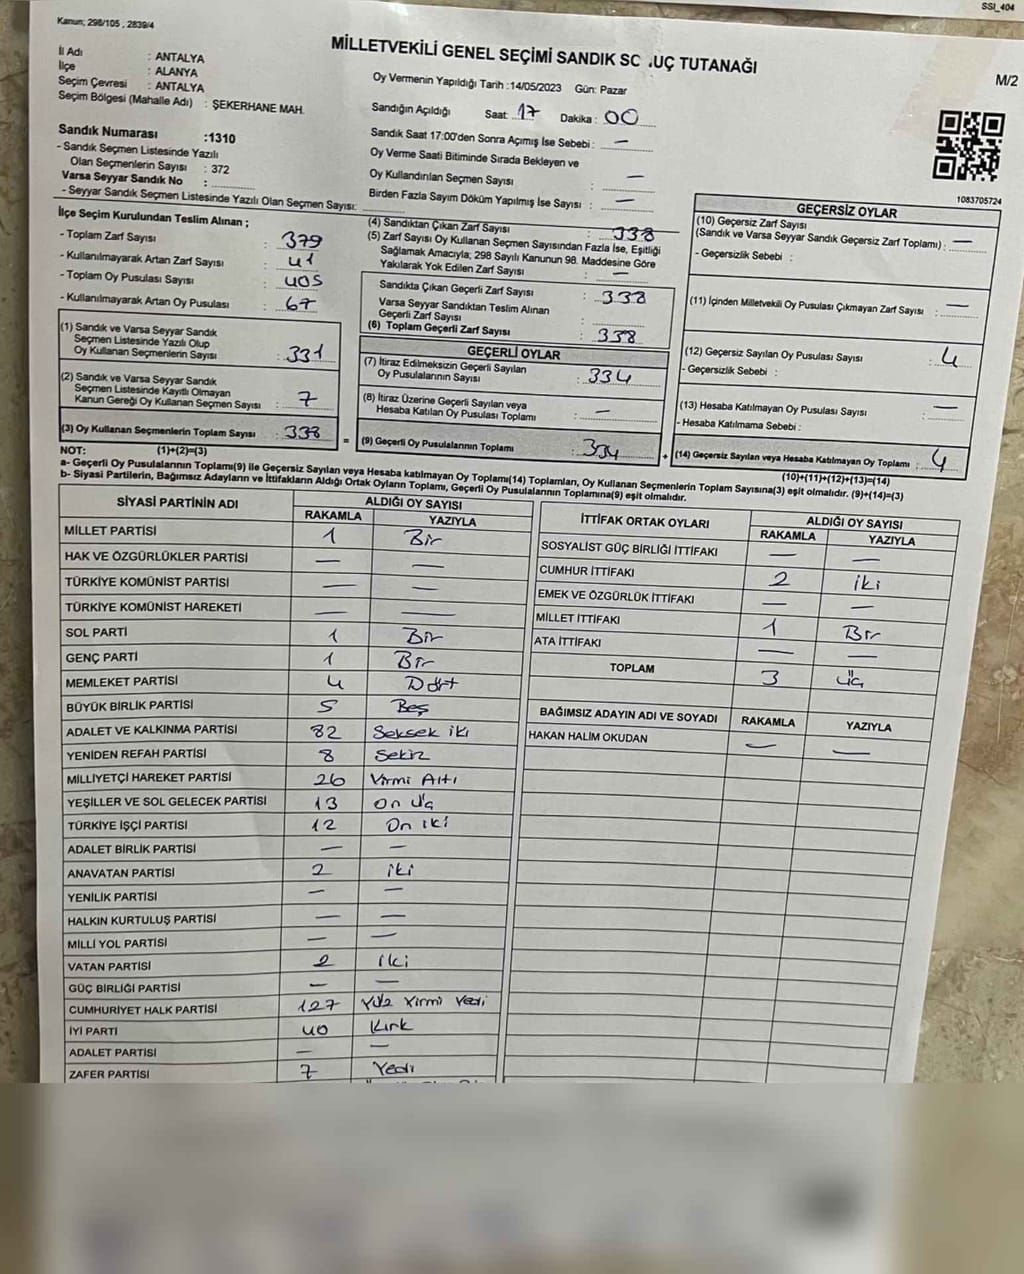 SSI_404
Kanun; 298/105 , 2839/4
MİLLETVEKİLİ GENEL SEÇİMİ SANDIK SO UÇ TUTANAĞI
M/2
İl Adı : ANTALYA
İlçe : ALANYA
Seçim Çevresi : ANTALYA
Seçim Bölgesi (Mahalle Adı) : ŞEKERHANE MAH.
Oy Vermenin Yapıldığı Tarih :14/05/2023 Gün: Pazar
Sandığın Açıldığı Saat: 17 Dakika : 00
Sandık Numarası :1310
- Sandık Seçmen Listesinde Yazılı
Olan Seçmenlerin Sayısı : 372
Varsa Seyyar Sandık No :
- Seyyar Sandık Seçmen Listesinde Yazılı Olan Seçmen Sayısı:
Sandık Saat 17:00'den Sonra Açımış İse Sebebi : —
Oy Verme Saati Bitiminde Sırada Bekleyen ve
Oy Kullandırılan Seçmen Sayısı : —
Birden Fazla Sayım Döküm Yapılmış İse Sayısı : —
1083705724
İlçe Seçim Kurulundan Teslim Alınan ;
- Toplam Zarf Sayısı : 379
- Kullanılmayarak Artan Zarf Sayısı : 41
- Toplam Oy Pusulası Sayısı : 405
- Kullanılmayarak Artan Oy Pusulası : 67
(1) Sandık ve Varsa Seyyar Sandık
Seçmen Listesinde Yazılı Olup
Oy Kullanan Seçmenlerin Sayısı : 331
(2) Sandık ve Varsa Seyyar Sandık
Seçmen Listesinde Kayıtlı Olmayan
Kanun Gereği Oy Kullanan Seçmen Sayısı : 7
(3) Oy Kullanan Seçmenlerin Toplam Sayısı : 338
(4) Sandıktan Çıkan Zarf Sayısı : 338
(5) Zarf Sayısı Oy Kullanan Seçmen Sayısından Fazla İse, Eşitliği
Sağlamak Amacıyla; 298 Sayılı Kanunun 98. Maddesine Göre
Yakılarak Yok Edilen Zarf Sayısı : —
Sandıkta Çıkan Geçerli Zarf Sayısı : 338
Varsa Seyyar Sandıktan Teslim Alınan
Geçerli Zarf Sayısı :
(6) Toplam Geçerli Zarf Sayısı : 338
GEÇERLİ OYLAR
(7) İtiraz Edilmeksizin Geçerli Sayılan
Oy Pusulalarının Sayısı : 334
(8) İtiraz Üzerine Geçerli Sayılan veya
Hesaba Katılan Oy Pusulası Toplamı : —
= (9) Geçerli Oy Pusulalarının Toplamı : 334 +
GEÇERSİZ OYLAR
(10) Geçersiz Zarf Sayısı
(Sandık ve Varsa Seyyar Sandık Geçersiz Zarf Toplamı) : —
- Geçersizlik Sebebi :
(11) İçinden Milletvekili Oy Pusulası Çıkmayan Zarf Sayısı : —
(12) Geçersiz Sayılan Oy Pusulası Sayısı : 4
- Geçersizlik Sebebi :
(13) Hesaba Katılmayan Oy Pusulası Sayısı : —
- Hesaba Katılmama Sebebi :
(14) Geçersiz Sayılan veya Hesaba Katılmayan Oy Toplamı : 4
NOT: (1)+(2)=(3)
(10)+(11)+(12)+(13)=(14)
a- Geçerli Oy Pusulalarının Toplamı(9) ile Geçersiz Sayılan veya Hesaba katılmayan Oy Toplamı(14) Toplamları, Oy Kullanan Seçmenlerin Toplam Sayısına(3) eşit olmalıdır. (9)+(14)=(3)
b- Siyasi Partilerin, Bağımsız Adayların ve İttifakların Aldığı Ortak Oyların Toplamı, Geçerli Oy Pusulalarının Toplamına(9) eşit olmalıdır.
SİYASİ PARTİNİN ADI ALDIĞI OY SAYISI
RAKAMLA YAZIYLA
MİLLET PARTİSİ 1 Bir
HAK VE ÖZGÜRLÜKLER PARTİSİ — —
TÜRKİYE KOMÜNİST PARTİSİ — —
TÜRKİYE KOMÜNİST HAREKETİ — —
SOL PARTİ 1 Bir
GENÇ PARTİ 1 Bir
MEMLEKET PARTİSİ 4 Dört
BÜYÜK BİRLİK PARTİSİ 5 Beş
ADALET VE KALKINMA PARTİSİ 82 Seksek iki
YENİDEN REFAH PARTİSİ 8 Sekiz
MİLLİYETÇİ HAREKET PARTİSİ 26 Yirmi Altı
YEŞİLLER VE SOL GELECEK PARTİSİ 13 On Üç
TÜRKİYE İŞÇİ PARTİSİ 12 On iki
ADALET BİRLİK PARTİSİ — —
ANAVATAN PARTİSİ 2 iki
YENİLİK PARTİSİ — —
HALKIN KURTULUŞ PARTİSİ — —
MİLLİ YOL PARTİSİ — —
VATAN PARTİSİ 2 iki
GÜÇ BİRLİĞİ PARTİSİ — —
CUMHURİYET HALK PARTİSİ 127 Yüz Yirmi Yedi
İYİ PARTİ 40 Kırk
ADALET PARTİSİ — —
ZAFER PARTİSİ 7 Yedi
İTTİFAK ORTAK OYLARI ALDIĞI OY SAYISI
RAKAMLA YAZIYLA
SOSYALİST GÜÇ BİRLİĞİ İTTİFAKI — —
CUMHUR İTTİFAKI 2 iki
EMEK VE ÖZGÜRLÜK İTTİFAKI — —
MİLLET İTTİFAKI 1 Bir
ATA İTTİFAKI — —
TOPLAM 3 Üç
BAĞIMSIZ ADAYIN ADI VE SOYADI RAKAMLA YAZIYLA
HAKAN HALİM OKUDAN — —